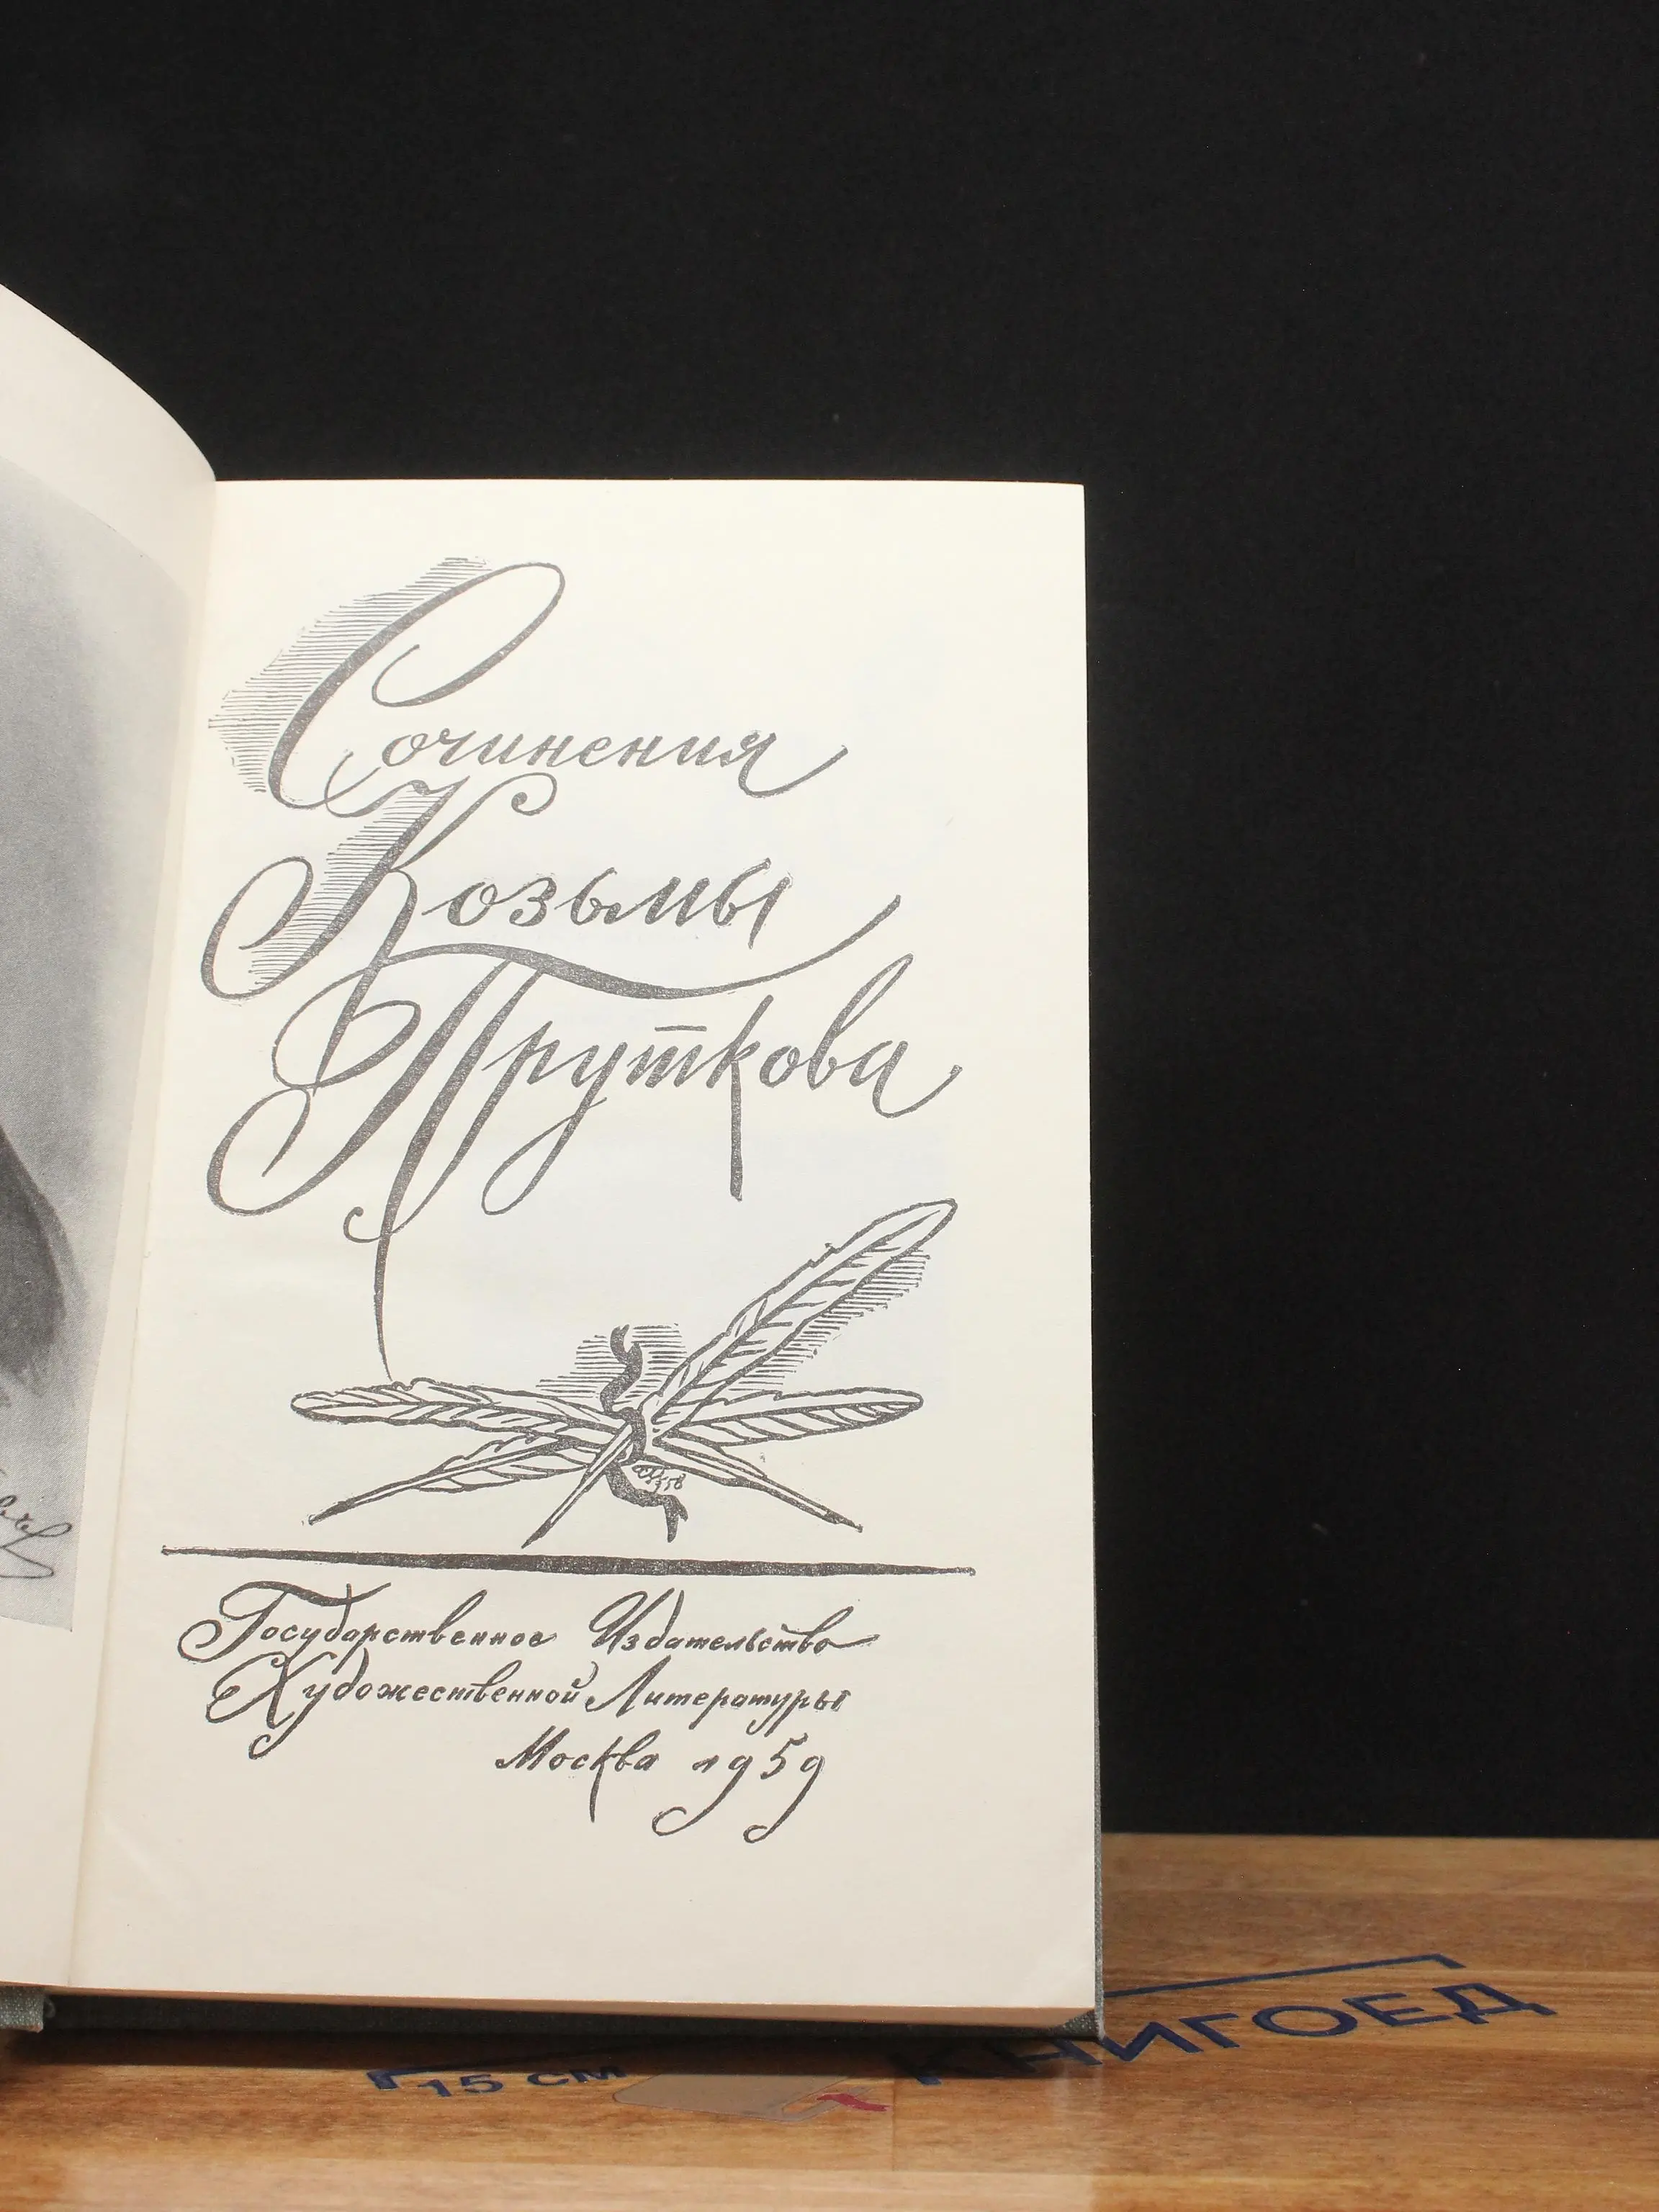 Сочинения
Козьмы
Пруткова
Государственное Издательство
Художественной Литературы
Москва 1959
15 см
КНИГОЕД